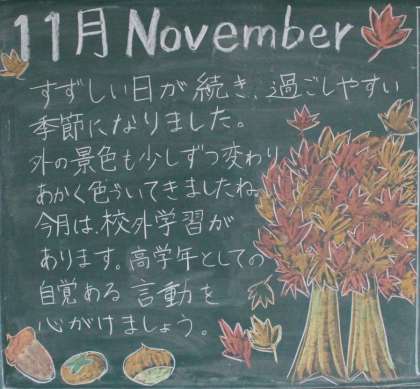 11月 November
すずしい日が続き、過ごしやすい
季節になりました。
外の景色も少しずつ変わり
あかく色ういてきましたね。
今月は、校外学習が
あります。高学年としての
自覚ある言動を
心がけましょう。